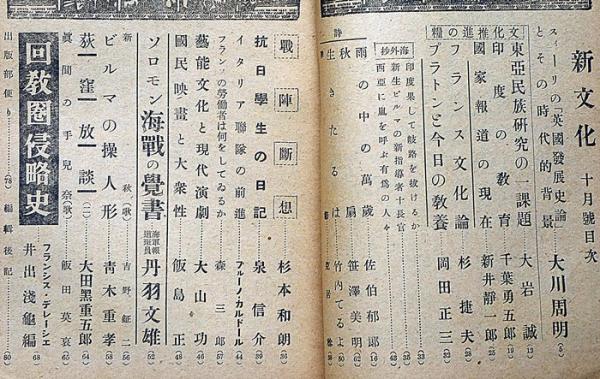 新文化 十月號目次
スィーリの「英國發展史論」とその時代的背景 大川周明
東亞民族研究の一課題 大岩誠
印度の教育 千葉勇五郎
國家報道の現在 新井靜一郎
フランス文化論 杉捷夫
プラトンと今日の教養 岡田正三
文化推進糧
海外抄
印度果して岐路を拔けるか
新生ビルマの新指導者十長官
西亞に嵐を呼ぶ有爲の人々
詩
雨の中の萬歲 佐伯郁郎
秋扇 笹澤美明
生きたるは 竹内てるよ
戰陣斷想 杉本和朗
抗日學生の日記 泉信介
イタリア聯隊の前進 ブルーノ・カルドール
フランスの勞働者は何をしてゐるか 森三郎
藝能文化と現代演劇 大山功
國民映畫と大衆性 飯島正
ソロモン海戰の覺書 海軍報道班員 丹羽文雄
新秋(歌) 吉野鉦二
ビルマの操人形 靑木重孝
荻窪放談(二) 大田黑重五郎
眞間の手兒奈(歌) 飯田莫哀
回教圈侵略史 フランシス・デレーシェ 井出淺龜編
出版部便り (78) 編輯後記 (80)